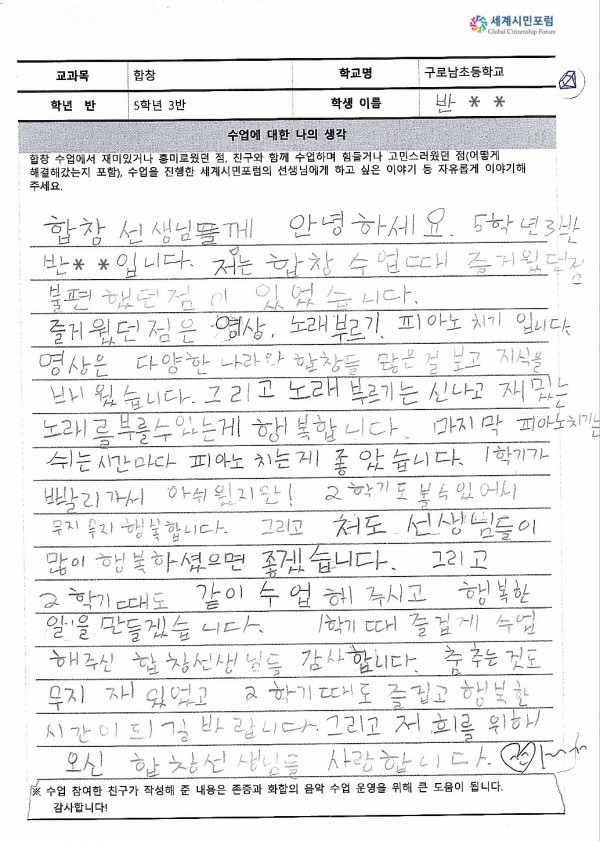 세계시민포럼
Global Citizenship Forum
교과목 합창 학교명 구로남초등학교
학년 반 5학년 3반 학생 이름 반 * *
수업에 대한 나의 생각
합창 수업에서 재미있거나 흥미로웠던 점, 친구와 함께 수업하며 힘들거나 고민스러웠던 점(어떻게
해결해갔는지 포함), 수업을 진행한 세계시민포럼의 선생님에게 하고 싶은 이야기 등 자유롭게 이야기해
주세요.
합창 선생님들께 안녕하세요. 5학년3반
반**입니다. 저는 합창 수업때 즐거웠던점
불편했던점이 있었습니다.
즐거웠던점은 영상, 노래부르기, 피아노 치기 입니다.
영상은 다양한 나라와 합창들 많은걸 보고 지식을
웠습니다. 그리고 노래부르기는 신나고 재밌는
노래를부를수있는게 행복합니다. 마지막 피아노치기는
쉬는시간마다 피아노 치는게 좋았습니다. 1학기가
빨리가서 아쉬웠지만! 2학기도 볼수있어서
무지무지 행복합니다. 그리고 저도 선생님들이
많이 행복하셨으면 좋겠습니다. 그리고
2학기때도 같이 수업해 주시고 행복한
일을 만들겠습니다. 1학기때 즐겁게 수업
해주신 합창선생님들 감사합니다. 춤추는것도
무지 재있었고 2학기때도 즐겁고 행복한
시간이되길바랍니다. 그리고 저희를위해
오신 합창선생님들 사랑합니다.
※ 수업 참여한 친구가 작성해 준 내용은 존중과 화합의 음악 수업 운영을 위해 큰 도움이 됩니다.
감사합니다!